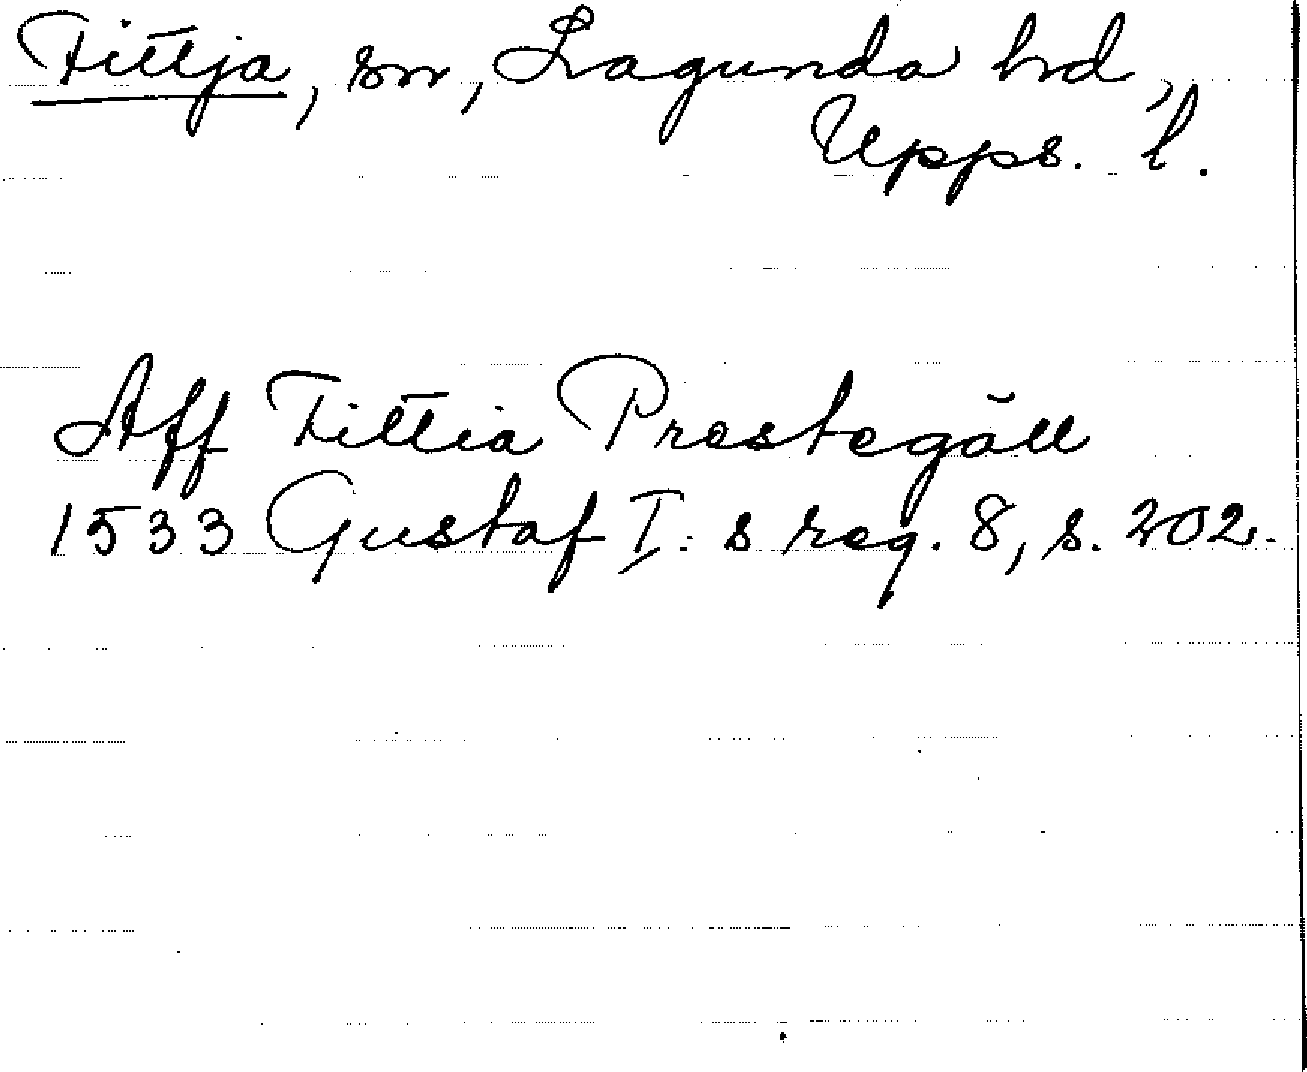 Fittja, sn, Lagunda hd,
Upps. l.
Aff Fittia Prestegäll
1533 Gustaf I:s reg. 8, s. 202.